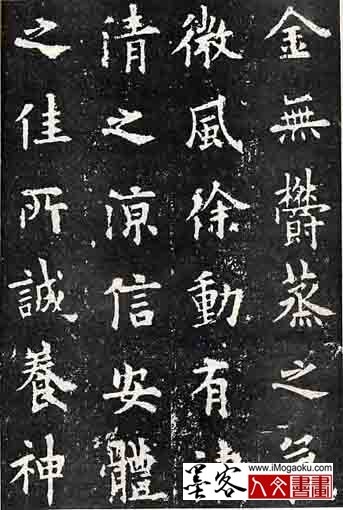 金無鬱蒸之
微風徐動有
清之涼信安體
之佳所誠養神
墨客
www.iMogaoku.com
人文書畫